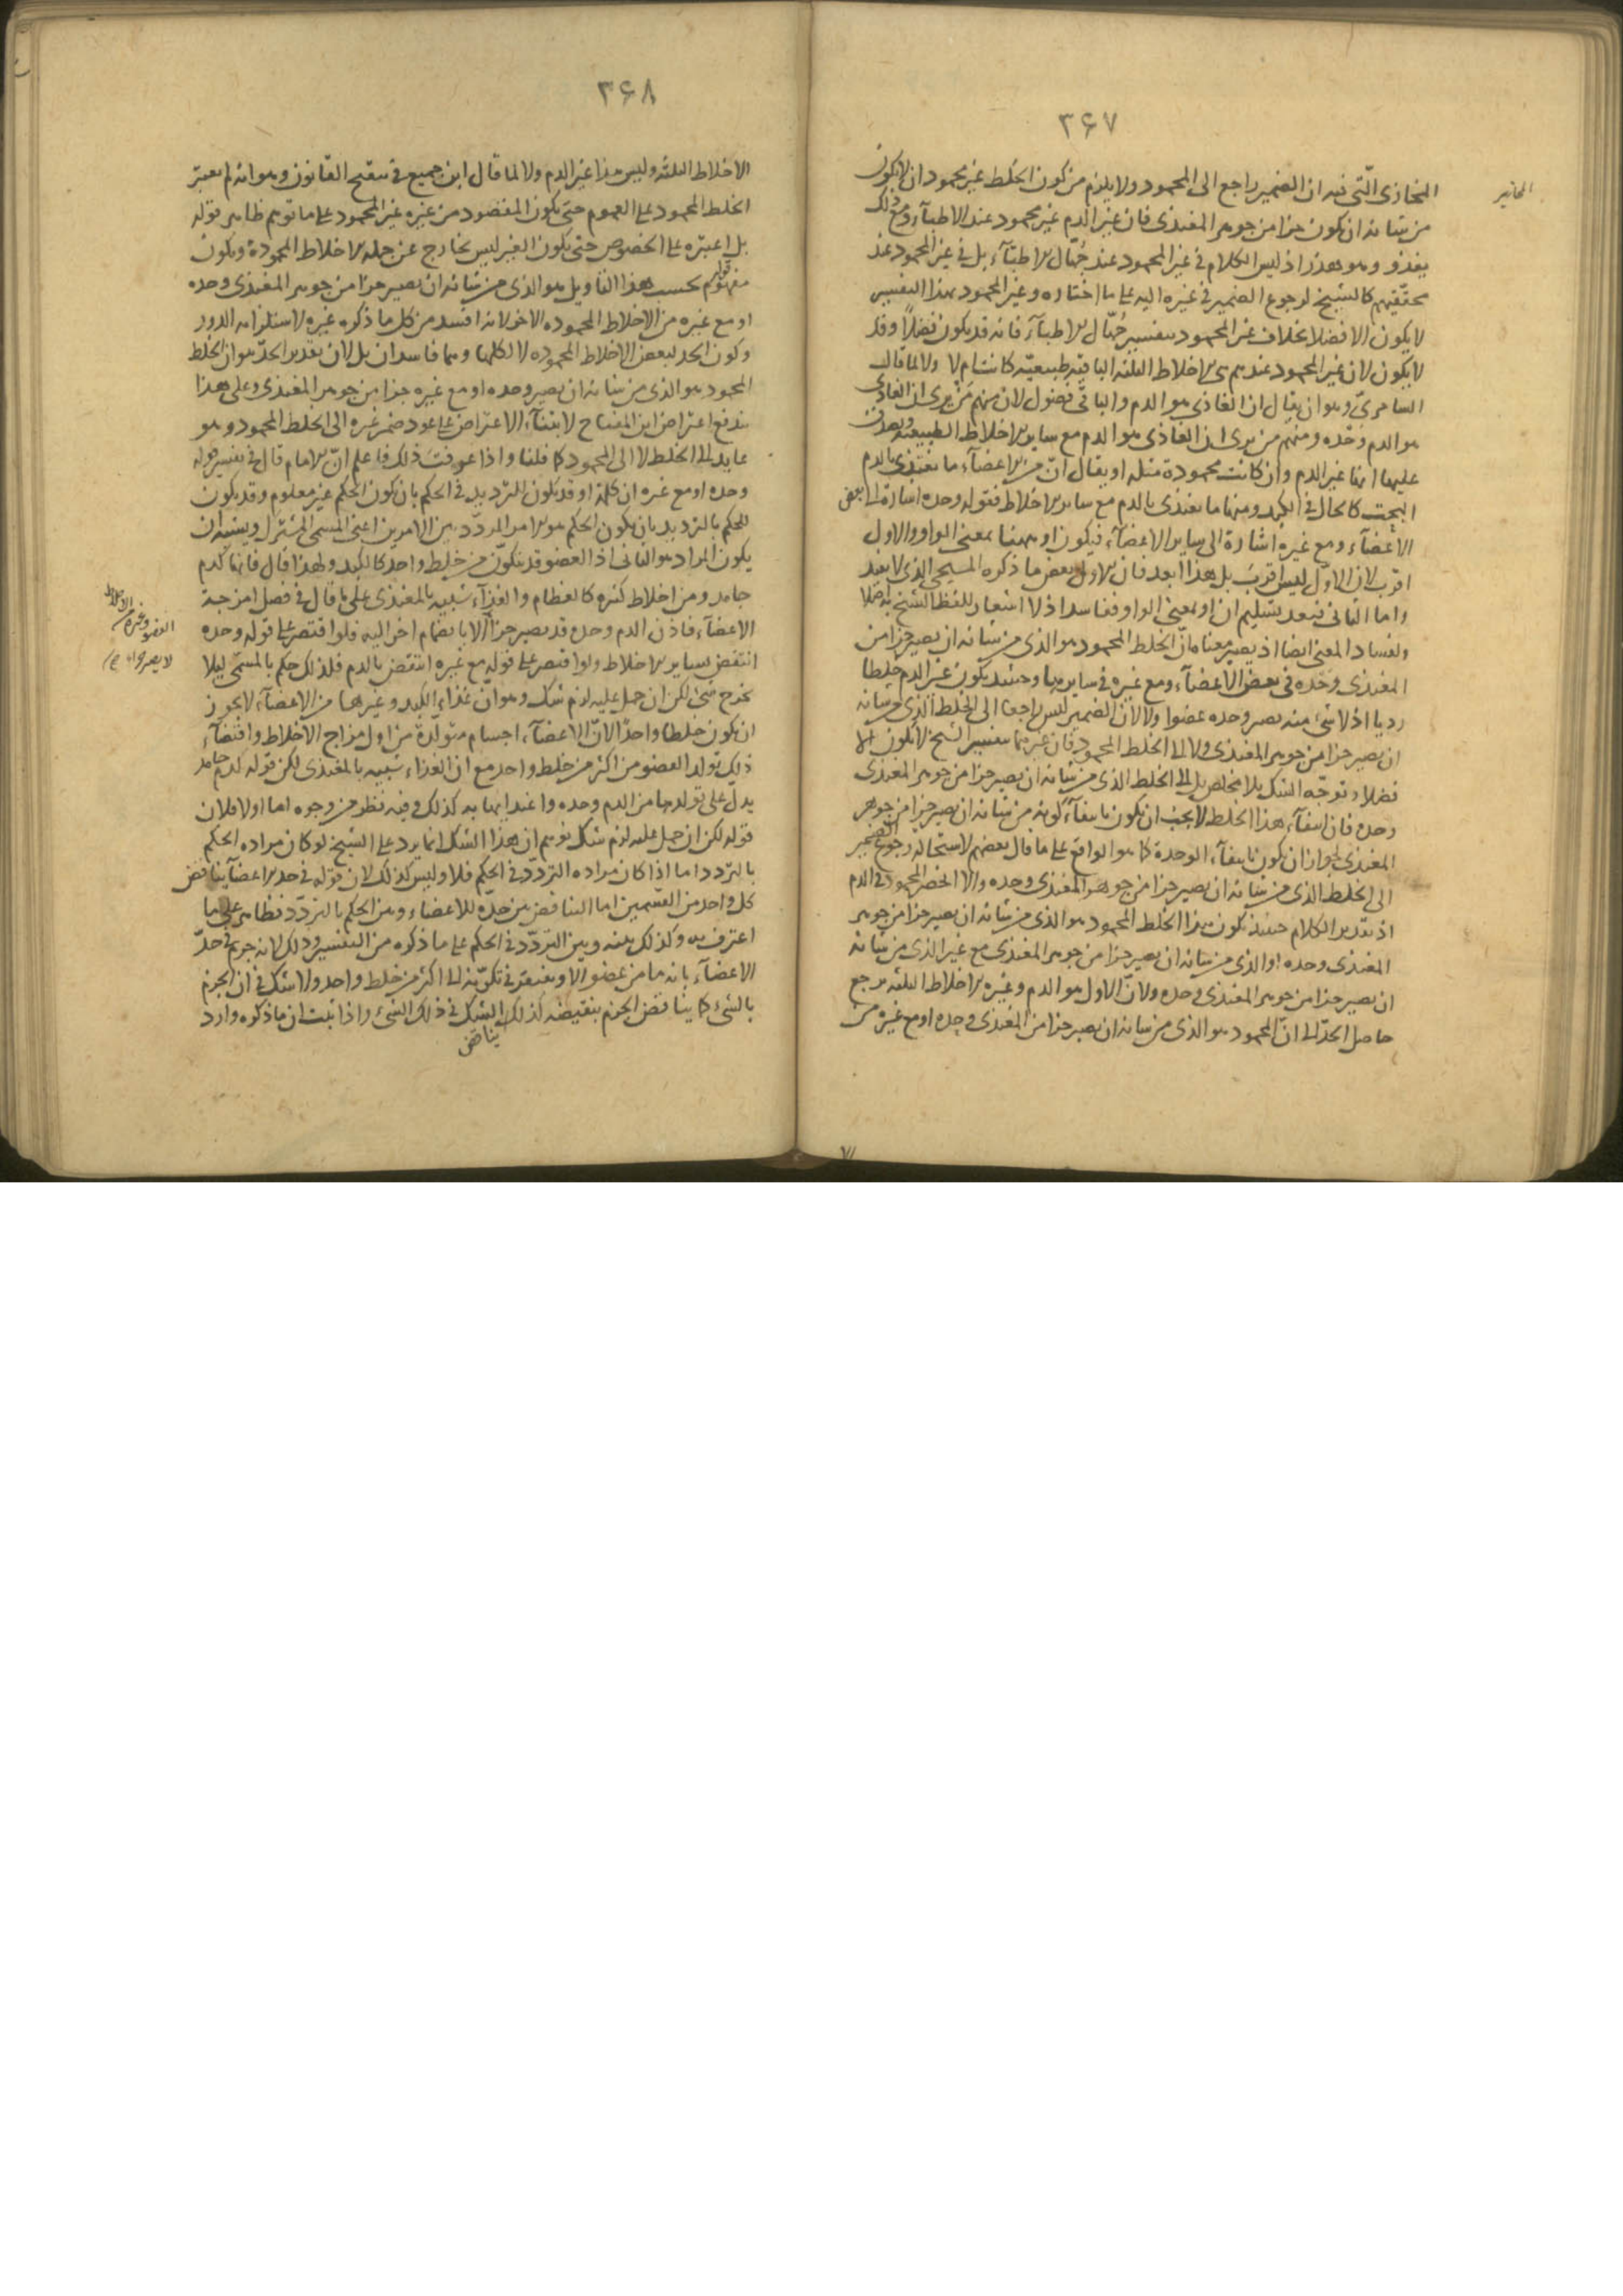 ٣۶٧
المخازى الّتى فيه ان الضمير راجع الى المحمود ولا يلزم من كون الخلط غير محمود ان لا يكون
من شانه ان يكون جزا من جوهر المغتذى فان غير الدم غير محمود عند الاطباء ومع ذلك
يغذو وهو هذر اذ ليس الكلام فى غير المحمود عند جُهّال الاطبّاء بل فى غير المحمود عند
محقّقيهم كالشيخ لرجوع الضمير فى غيره اليه على ما اختاره وغير المحمود بهذا التفسير
لا يكون الا فضلا بخلاف غير المحمود بتفسير جُهّال الاطبّاء فانه قد يكون فضلًا وقد
لا يكون لان غير المحمود عندهم هى الاخلاط الثلثه الباقيه طبيعيّه كانت ام لا ولا لما قال
السامرىّ وهو ان يقال ان الغاذى هو الدم والباقى فضول لان منهم مَنْ يرى ان الغاذى
هو الدم وحْده ومنهم من يرى ان الغاذى هو الدم مع ساير الاخلاط الطبيعيه ويصدق
عليها انها غير الدم وان كانت محمودة مثله او يقال انّ من الاعضاء ما يغتذى بالدم
البحت كالحال فى الكبد ومنها ما يغتذى بالدم مع ساير الاخلاط فقوله وحده اشارة الى بعض
الأعضاء ومع غيره اشارة الى ساير الاعضاء فيكون او ههنا بمعنى الواو والاول
اقرب لان الاوّل ليس اقربَ بل هذا ابعد فان الاول بعض ما ذكره المسيحى الذى لا بعد
واما الثانى فبعد تسليم ان او بمعنى الواو ففاسد اذ لا اشعار للفظ الشيخ به اصلا
ولفساد المعنى ايضا اذ يصير معناه انّ الخلط المحمود هو الذى من شانه ان يصير جزا من
المغتذى وحْده فى بعض الاعضاء ومع غيره فى سايرها وحينئذ يكون غير الدم خلطا
رديا اذ لا شئ منه يصير وحده عضوا ولا لان الضمير ليس راجعا الى الخلط الذى من شانه
ان يصير جزا من جوهر المغتذى ولا الى الخلط المحمود فان غيرهما بتفسير الشيخ لا يكون الا
فضلا وتوجّه الشك بلا مخلص بل الى الخلط الذى من شانه ان يصير جزا من جوهر المغتذى
وحده فان انتفاء هذا الخلط لا يجب ان يكون بانتفاء كونه من شانه ان يصير جزا من جوهر
المغتذى لجواز ان يكون بانتفاء الوحدة كما هو الواقع على ما قال بعضهم لاستحاله رجوع الضمير
الى الخلط الذى من شانه ان يصير جزا من جوهر المغتذى وحده والا انحصر المحمود فى الدم
اذ تقدير الكلام حينئذ يكون هذا الخلط المحمود هو الذى من شانه ان يصير جزا من جوهر
المغتذى وحده او الذى من شانه ان يصير جزا من جوهر المغتذى مع غير الذى من شانه
ان يصير جزا من جوهر المغتذى وحده ولانّ الاول هو الدم وغيره الاخلاط الثلثه يرجع
حاصل الحدّ الى انّ المحمود هو الذى من شانه ان يصير جزا من المغتذى وحده او مع غيره من
٣۶٨
الاخلاط الثلثه وليس هذا غير الدم ولا لما قال ابن جميع فى تنقيح القانون وهو انه لم يعتبر
الخلط المحمود على العموم حتى يكون المقصود من غيره غير المحمود على ما توهم ظاهر قوله
بل اعتبره على الخصوص حتى يكون الغير ليس بخارج عن جمله الاخلاط المحمودة ويكون
مفهوم قوله بحسب هذا التاويل هو الذى من شانه ان يصير جزا من جوهر المغتذى وحده
او مع غيره من الاخلاط المحموده الاخر لانه افسد من كل ما ذكره غيره لاستلزامه الدور
وكون الحد لبعض الاخلاط المحموده لا لكلها وهما فاسدان بل لان تقدير الحدّ هو ان الخلط
المحمود هو الذى من شانه ان يصير وحده او مع غيره جزا من جوهر المغتذى وعلى هذا
يندفع اعتراض ابن المفتاح لابتناء الاعتراض على عود ضمير غيره الى الخلط المحمود وهو
عايد الى الخلط لا الى المحمود كما قلنا واذا عرفتَ ذلك فاعلم انّ الامام قال فى تفسير قوله
وحده او مع غيره ان كلمة او قد يكون للترديد فى الحكم بان يكون الحكم غير معلوم وقد يكون
للحكم بالترديد بان يكون الحكم هو الامر المردّد بين الامرين اعنى المسمى المشترك ويشبه ان
يكون المراد هو الثانى اذ العضو قد يتكوّن من خلط واحد كالكبد ولهذا قال فانها كدم
جامد ومن اخلاط كثيره كالعظام والغذاء شبيه بالمغتذى على ما قال فى فصل امزجة
الاعضاء فاذن الدم وحده قد يصير جزأ الا بانضمام اخر اليه فلو اقتصر على قوله وحده
انتقض بساير الاخلاط ولو اقتصر على قوله مع غيره انتقض بالدم فلذلك حكم بالمسمّى ليلا
يخرج شئ لكن ان حمل عليه لزم شك وهو انّ غذاء الكبد وغيرها من الاعضاء لا يجوز
ان يكون خلطا واحدًا لانّ الاعضاء اجسام متولّدة من اول مزاج الاخلاط واقتضاء
ذلك تولد العضو من اكثر من خلط واحد مع ان الغذاء شبيه بالمغتذى لكن قوله كدم جامد
يدلّ على تولدها من الدم وحده واغتذائها به كذلك وفيه نظر من وجوه اما اولا فلان
قوله لكن ان حمل عليه لزم شك توهم ان هذا الشك انما يرد على الشيخ لو كان مراده الحكم
بالتردد اما اذا كان مراده التردّد فى الحكم فلا وليس كذلك لان قوله فى حد الاعضاء يناقض
كل واحد من القسمين اما التناقض بين حدّه للاعضاء وبين الحكم بالتردّد فظاهر على ما
اعترف به وكذلك بينه وبين التردّد فى الحكم على ما ذكره من التفسير وذلك لانه جزم فى حدّ
الاعضاء بانه ما من عضو الا ويفتقر فى تكوّنه الى اكثر من خلط واحد ولا شك فى ان الجزم
بالشئ كما يناقض الجزم بنقيضه كذلك يناقض الشك فى ذلك الشئ واذا ثبت ان ما ذكره وارد